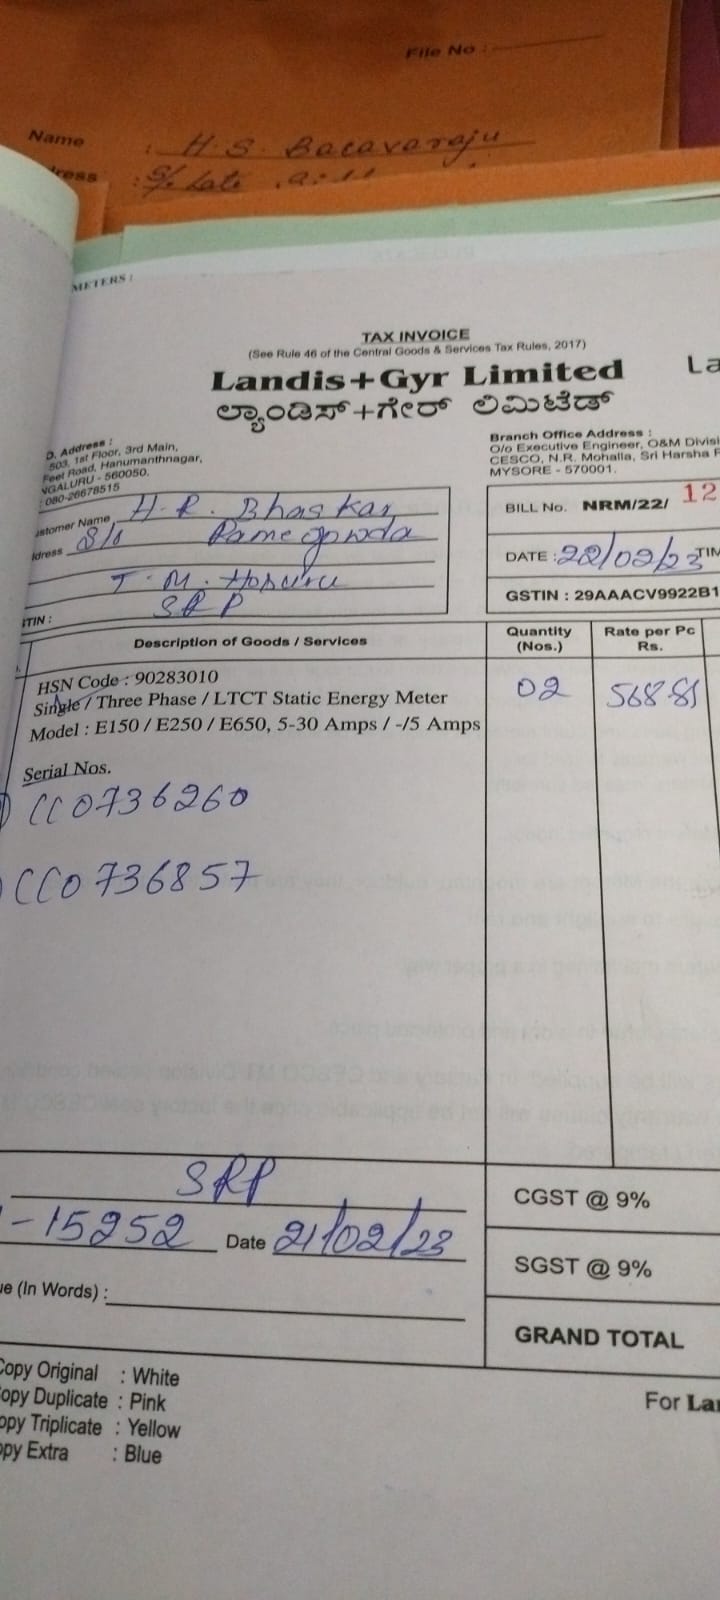 File No :
Name : H. S. Bacavaraju
ress : S/o Late
METERS :
TAX INVOICE
(See Rule 46 of the Central Goods & Services Tax Rules, 2017)
Landis+Gyr Limited
La
ಲ್ಯಾಂಡಿಸ್+ಗೇರ್ ಲಿಮಿಟೆಡ್
D. Address :
503, 1st Floor, 3rd Main,
Feet Road, Hanumanthnagar,
NGALURU - 560050.
: 080-26678515
Branch Office Address :
O/o Executive Engineer, O&M Divisi
CESCO, N.R. Mohalla, Sri Harsha R
MYSORE - 570001.
ustomer Name H. R. Bhaskar
ddress S/o Ramegowda
T. M. Hosuru
STIN : SRP
BILL No. NRM/22/ 12
DATE : 22/02/23 TIM
GSTIN : 29AAACV9922B1
Description of Goods / Services
Quantity (Nos.)
Rate per Pc Rs.
HSN Code : 90283010
Single / Three Phase / LTCT Static Energy Meter
Model : E150 / E250 / E650, 5-30 Amps / -/5 Amps
02
568.81
Serial Nos.
CC0736260
CC0736857
SRP
-15252 Date 21/02/23
ue (In Words) :
CGST @ 9%
SGST @ 9%
GRAND TOTAL
Copy Original : White
opy Duplicate : Pink
opy Triplicate : Yellow
opy Extra : Blue
For Lan